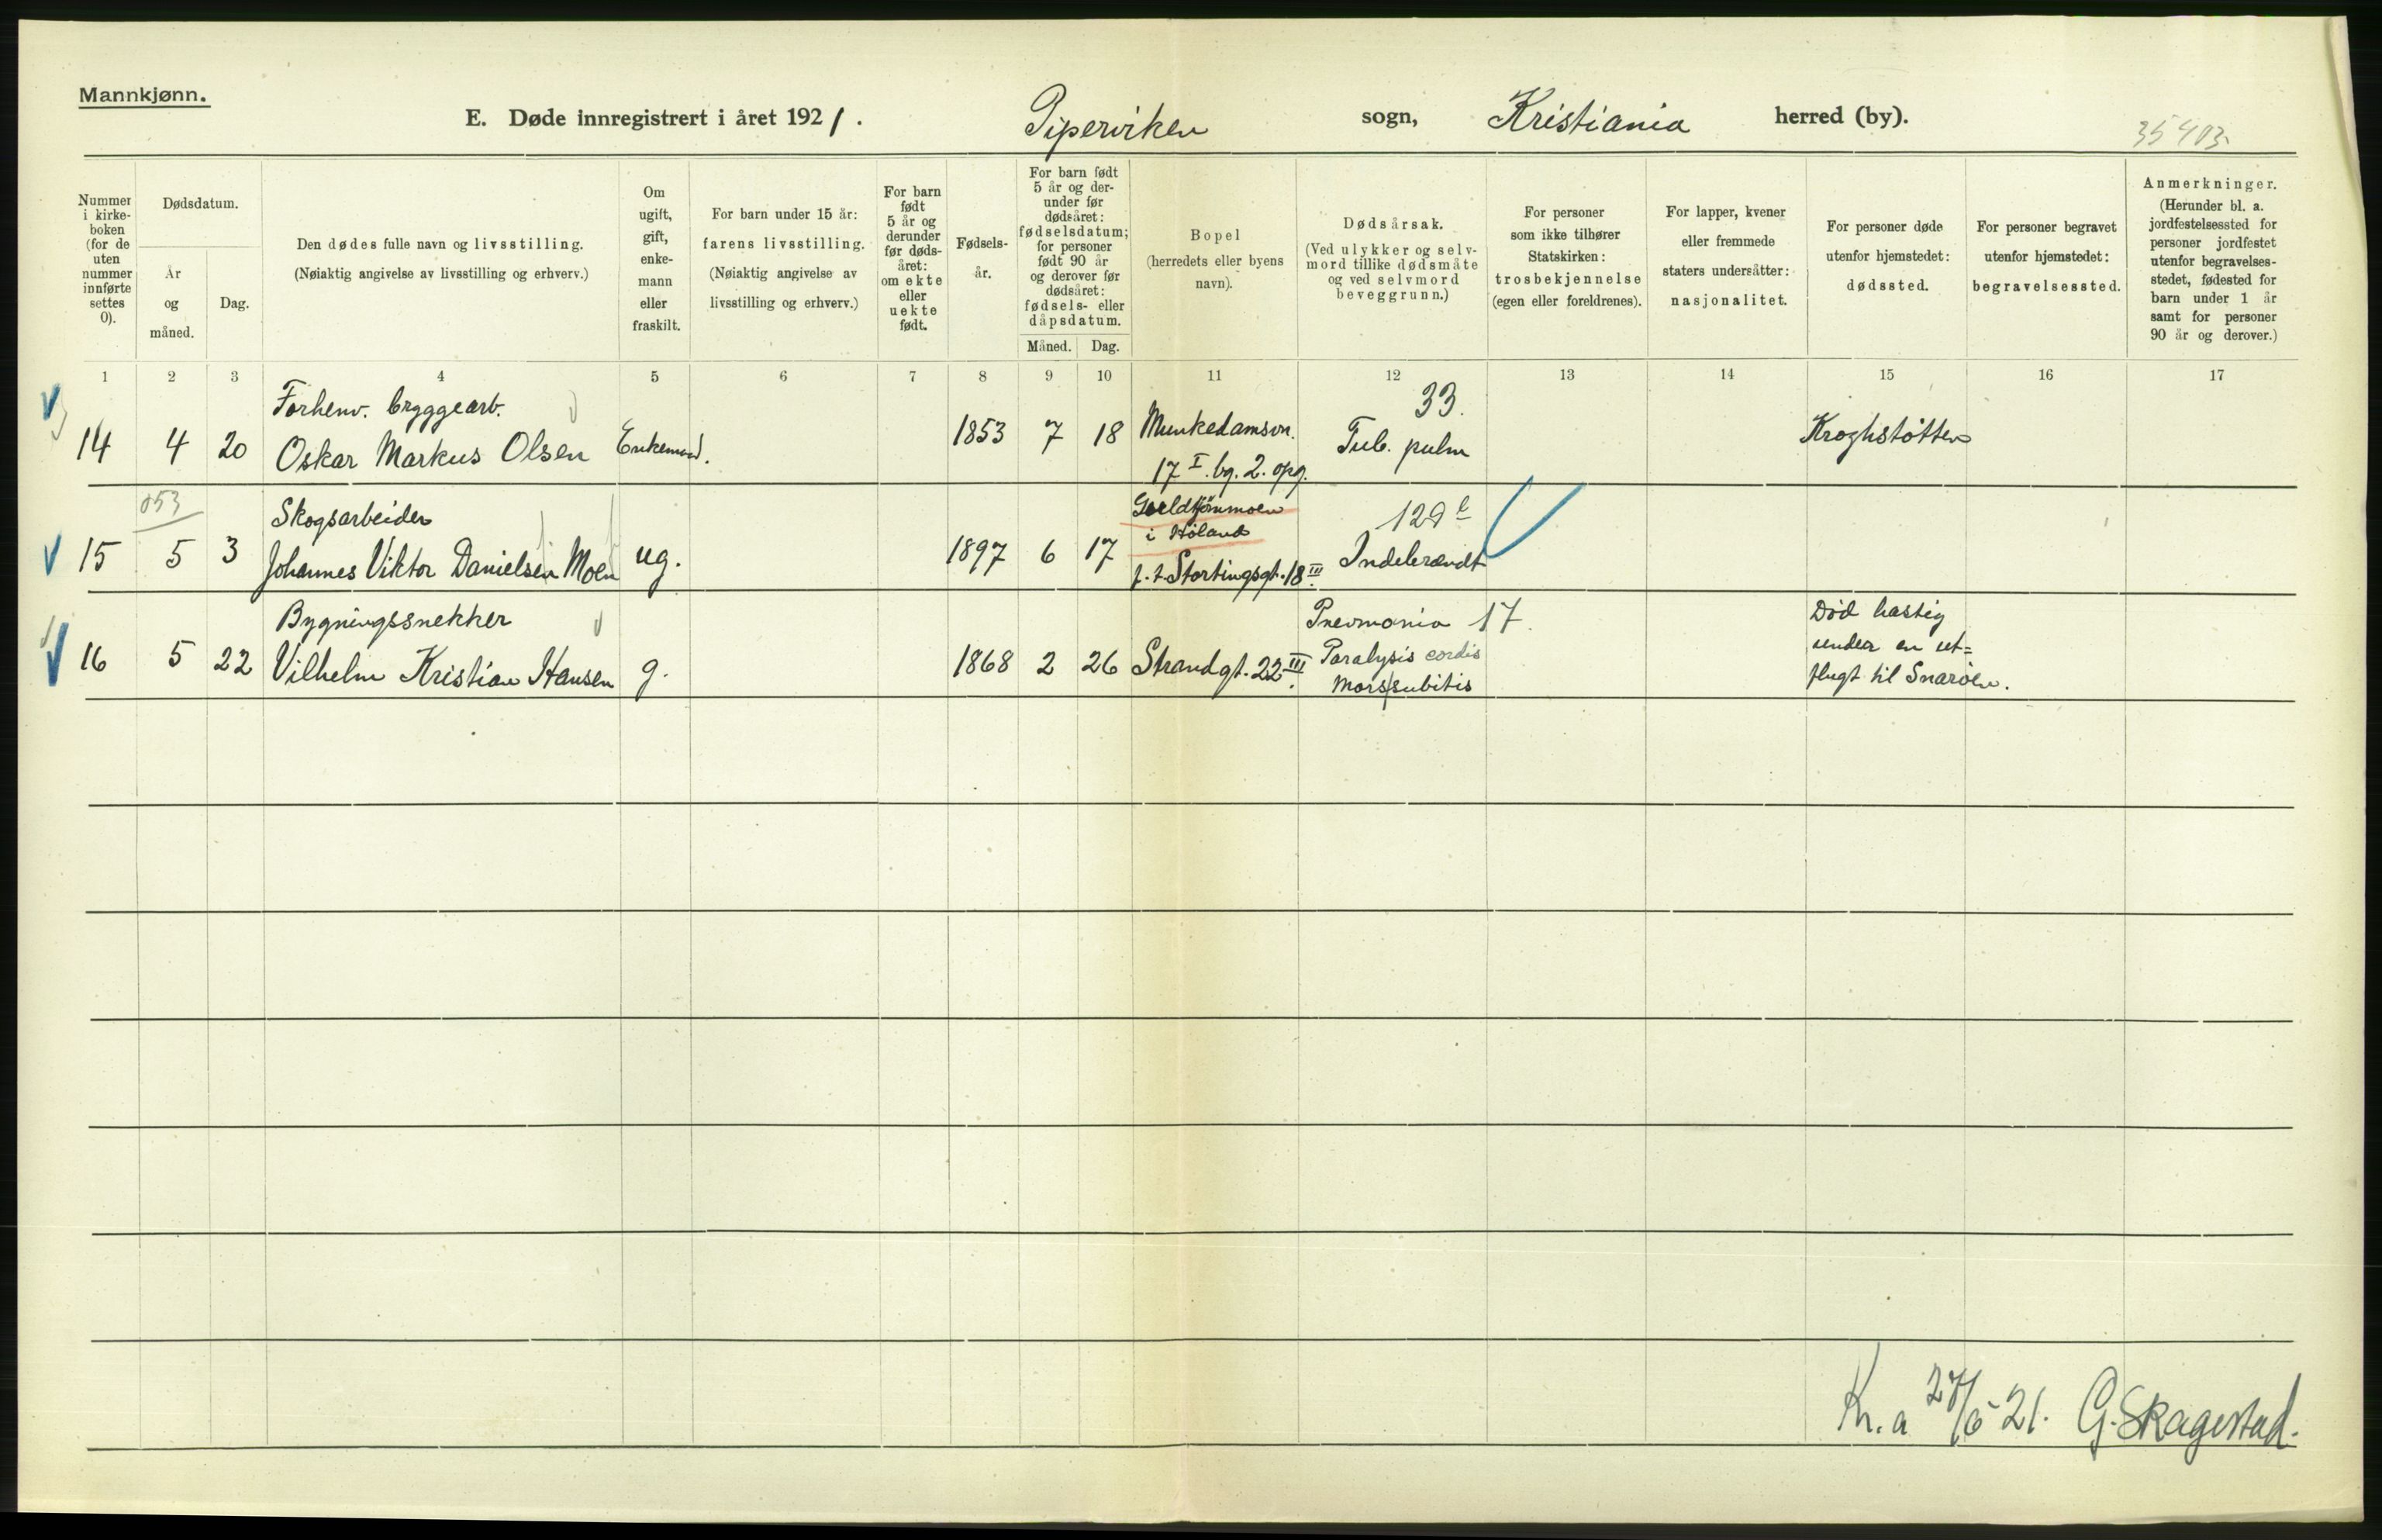 Mannkjønn.
E. Døde innregistrert i året 1921. Pipervirken sogn, Kristiania herred (by).
35403
Nummer i kirke- boken (for de uten nummer innførte settes 0).
Dødsdatum.
År og måned.
Dag.
Den dødes fulle navn og livsstilling.
(Nøiaktig angivelse av livsstilling og erhverv.)
Om ugift, gift, enke- mann eller fraskilt.
For barn under 15 år:
farens livsstilling.
(Nøiaktig angivelse av
livsstilling og erhverv.)
For barn født 5 år og derunder før døds- året: om ekte eller uekte født.
Fødsels- år.
For barn født 5 år og der- under før dødsåret: fødselsdatum; for personer født 90 år og derover før dødsåret: fødsels- eller dåpsdatum.
Måned. Dag.
Bopel
(herredets eller byens
navn).
Dødsårsak.
(Ved ulykker og selv-
mord tillike dødsmåte
og ved selvmord
beveggrunn.)
For personer
som ikke tilhører
Statskirken:
trosbekjennelse
(egen eller foreldrenes).
For lapper, kvener
eller fremmede
staters undersåtter:
nasjonalitet.
For personer døde
utenfor hjemstedet:
dødssted.
For personer begravet
utenfor hjemstedet:
begravelsessted.
Anmerkninger.
(Herunder bl. a.
jordfestelsessted for
personer jordfestet
utenfor begravelses-
stedet, fødested for
barn under 1 år
samt for personer
90 år og derover.)
1 2 3 4 5 6 7 8 9 10 11 12 13 14 15 16 17
Forhenv. bryggearb.
33.
14 4 20 Oskar Markus Olsen Enkemand. 1853 7 18 Munkedamsvn. Tub. pulm Kroghstøtten
17 I. bg. 2. opg.
053
Skogsarbeider
i Høland
129 b
15 5 3 Johannes Viktor Danielsen Moen ug. 1897 6 17 f. t. Stortingsgt. 18 III Indebrændt
Bygningssnekker
Pnevmonia 17.
Død hastig
16 5 22 Vilhelm Kristian Hansen g. 1868 2 26 Strandgt. 22 III. Paralysis cordis under en ut=
Mors subitis flugt til Snarøen.
Kr.a 27/5 21. G. Skagestad.